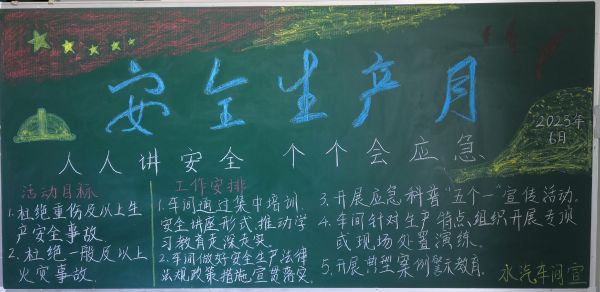 安全生产月
2023年
6月
人人讲安全 个个会应急
活动目标
1.杜绝重伤及以上生
产安全事故.
2.杜绝一般及以上
火灾事故.
工作安排
1.车间通过集中培训.
安全讲座形式,推动学
习教育走深走实.
2.车间做好安全生产法律
法规政策措施宣贯落实.
3.开展应急科普"五个一"宣传活动.
4.车间针对生产特点组织开展专项
或现场处置演练.
5.开展典型案例警示教育.
水汽车间宣